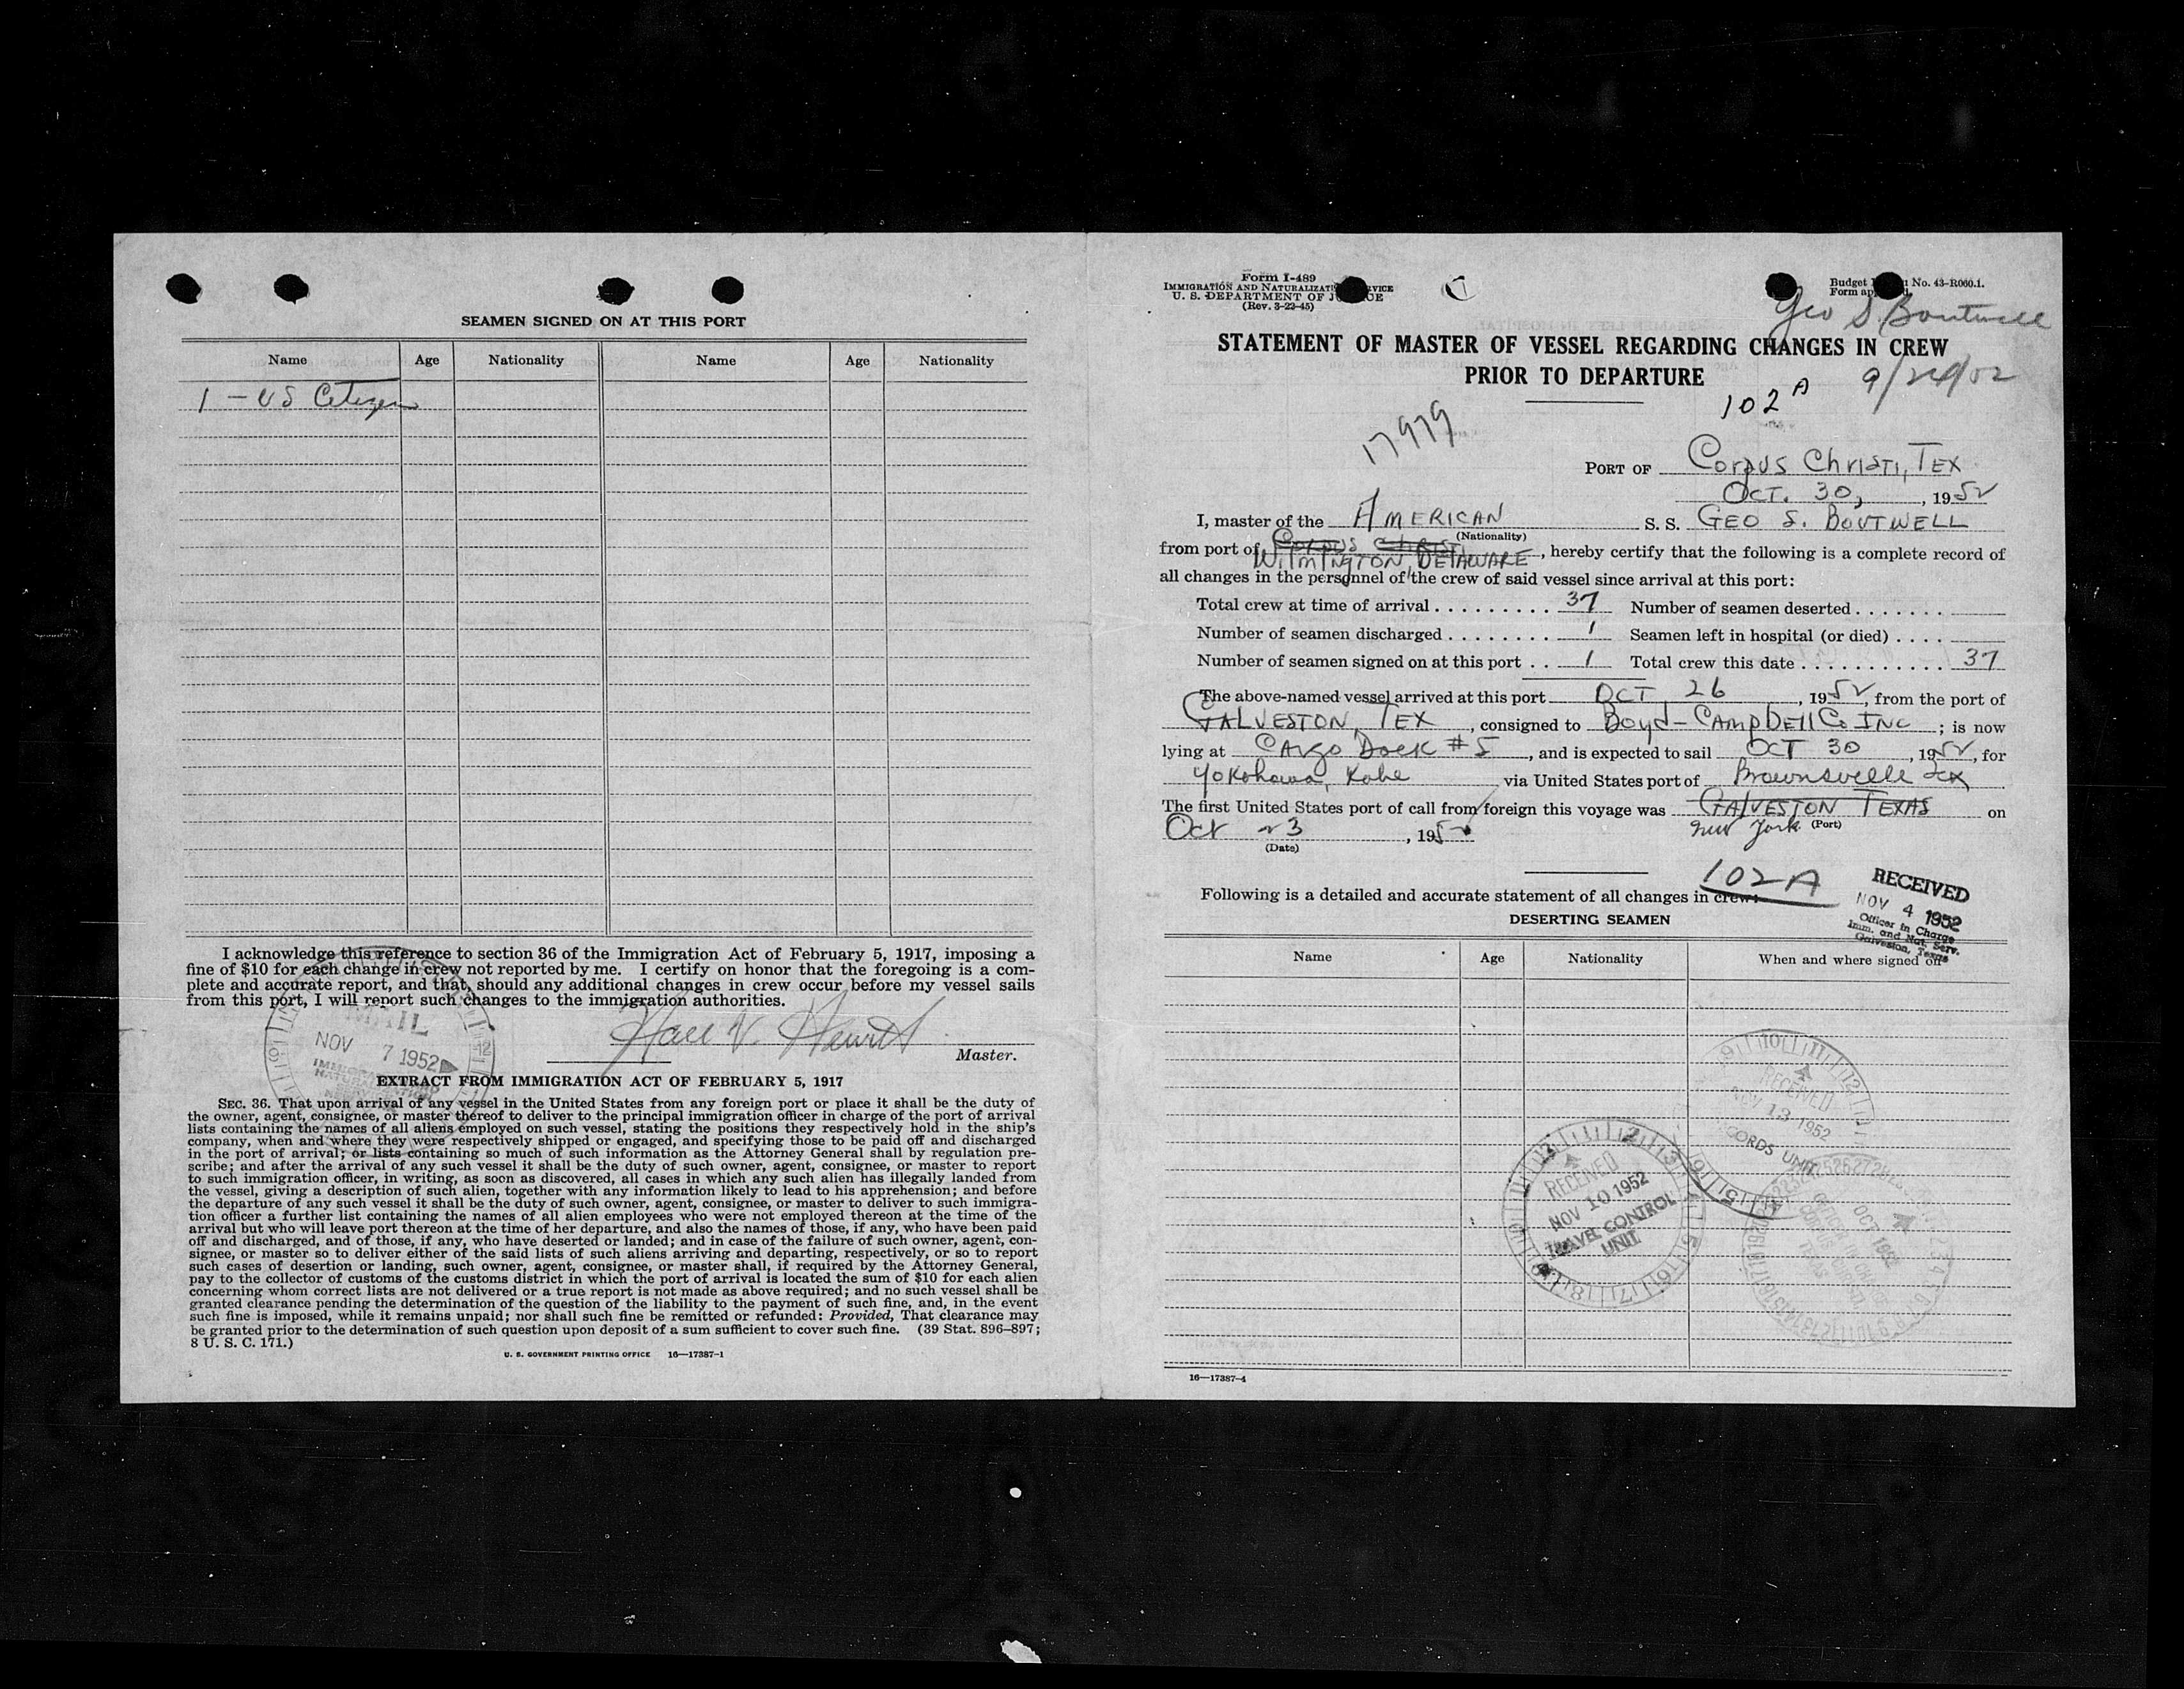 SEAMEN SIGNED ON AT THIS PORT
Name Age Nationality Name Age Nationality
1 - US Citizen
I acknowledge this reference to section 36 of the Immigration Act of February 5, 1917, imposing a
fine of $10 for each change in crew not reported by me. I certify on honor that the foregoing is a com-
plete and accurate report, and that, should any additional changes in crew occur before my vessel sails
from this port, I will report such changes to the immigration authorities.
MAIL
NOV 7 1952
Master.
EXTRACT FROM IMMIGRATION ACT OF FEBRUARY 5, 1917
SEC. 36. That upon arrival of any vessel in the United States from any foreign port or place it shall be the duty of
the owner, agent, consignee, or master thereof to deliver to the principal immigration officer in charge of the port of arrival
lists containing the names of all aliens employed on such vessel, stating the positions they respectively hold in the ship's
company, when and where they were respectively shipped or engaged, and specifying those to be paid off and discharged
in the port of arrival; or lists containing so much of such information as the Attorney General shall by regulation pre-
scribe; and after the arrival of any such vessel it shall be the duty of such owner, agent, consignee, or master to report
to such immigration officer, in writing, as soon as discovered, all cases in which any such alien has illegally landed from
the vessel, giving a description of such alien, together with any information likely to lead to his apprehension; and before
the departure of any such vessel it shall be the duty of such owner, agent, consignee, or master to deliver to such immigra-
tion officer a further list containing the names of all alien employees who were not employed thereon at the time of the
arrival but who will leave port thereon at the time of her departure, and also the names of those, if any, who have been paid
off and discharged, and of those, if any, who have deserted or landed; and in case of the failure of such owner, agent, con-
signee, or master so to deliver either of the said lists of such aliens arriving and departing, respectively, or so to report
such cases of desertion or landing, such owner, agent, consignee, or master shall, if required by the Attorney General,
pay to the collector of customs of the customs district in which the port of arrival is located the sum of $10 for each alien
concerning whom correct lists are not delivered or a true report is not made as above required; and no such vessel shall be
granted clearance pending the determination of the question of the liability to the payment of such fine, and, in the event
such fine is imposed, while it remains unpaid; nor shall such fine be remitted or refunded: Provided, That clearance may
be granted prior to the determination of such question upon deposit of a sum sufficient to cover such fine. (39 Stat. 896–897;
8 U. S. C. 171.)
U. S. GOVERNMENT PRINTING OFFICE 16—17387-1
Form I-489
IMMIGRATION AND NATURALIZATI RVICE
U. S. DEPARTMENT OF J CE
(Rev. 3-22-45)
Budget No. 43-R060.1.
Form ap
Geo S. Boutwell
STATEMENT OF MASTER OF VESSEL REGARDING CHANGES IN CREW
PRIOR TO DEPARTURE
102 A
17979
PORT OF Corpus Christi, Tex
Oct. 30, , 1952
I, master of the American S. S. Geo S. Boutwell
(Nationality)
from port of Corpus Christi Wilmington, Delaware, hereby certify that the following is a complete record of
all changes in the personnel of the crew of said vessel since arrival at this port:
Total crew at time of arrival . . . . . . . . . 37 Number of seamen deserted . . . . . . .
Number of seamen discharged . . . . . . . . 1 Seamen left in hospital (or died) . . . .
Number of seamen signed on at this port . . 1 Total crew this date . . . . . . . . . . . 37
The above-named vessel arrived at this port Oct 26, 1952, from the port of
Galveston, Tex, consigned to Boyd-Campbell Co Inc; is now
lying at Cargo Dock #5, and is expected to sail Oct 30, 1952, for
Yokohama, Kobe via United States port of Brownsville Tex
The first United States port of call from foreign this voyage was Galveston Texas on
New York (Port)
Oct 23, 1952
(Date)
102A
Following is a detailed and accurate statement of all changes in crew:
RECEIVED
NOV 4 1952
Officer in Charge
Imm. and Nat. Serv.
Galveston, Texas
DESERTING SEAMEN
Name Age Nationality When and where signed on
RECEIVED
NOV 13 1952
RECORDS UNIT
RECEIVED
NOV 10 1952
TRAVEL CONTROL
UNIT
OCT 1952
16—17387-4